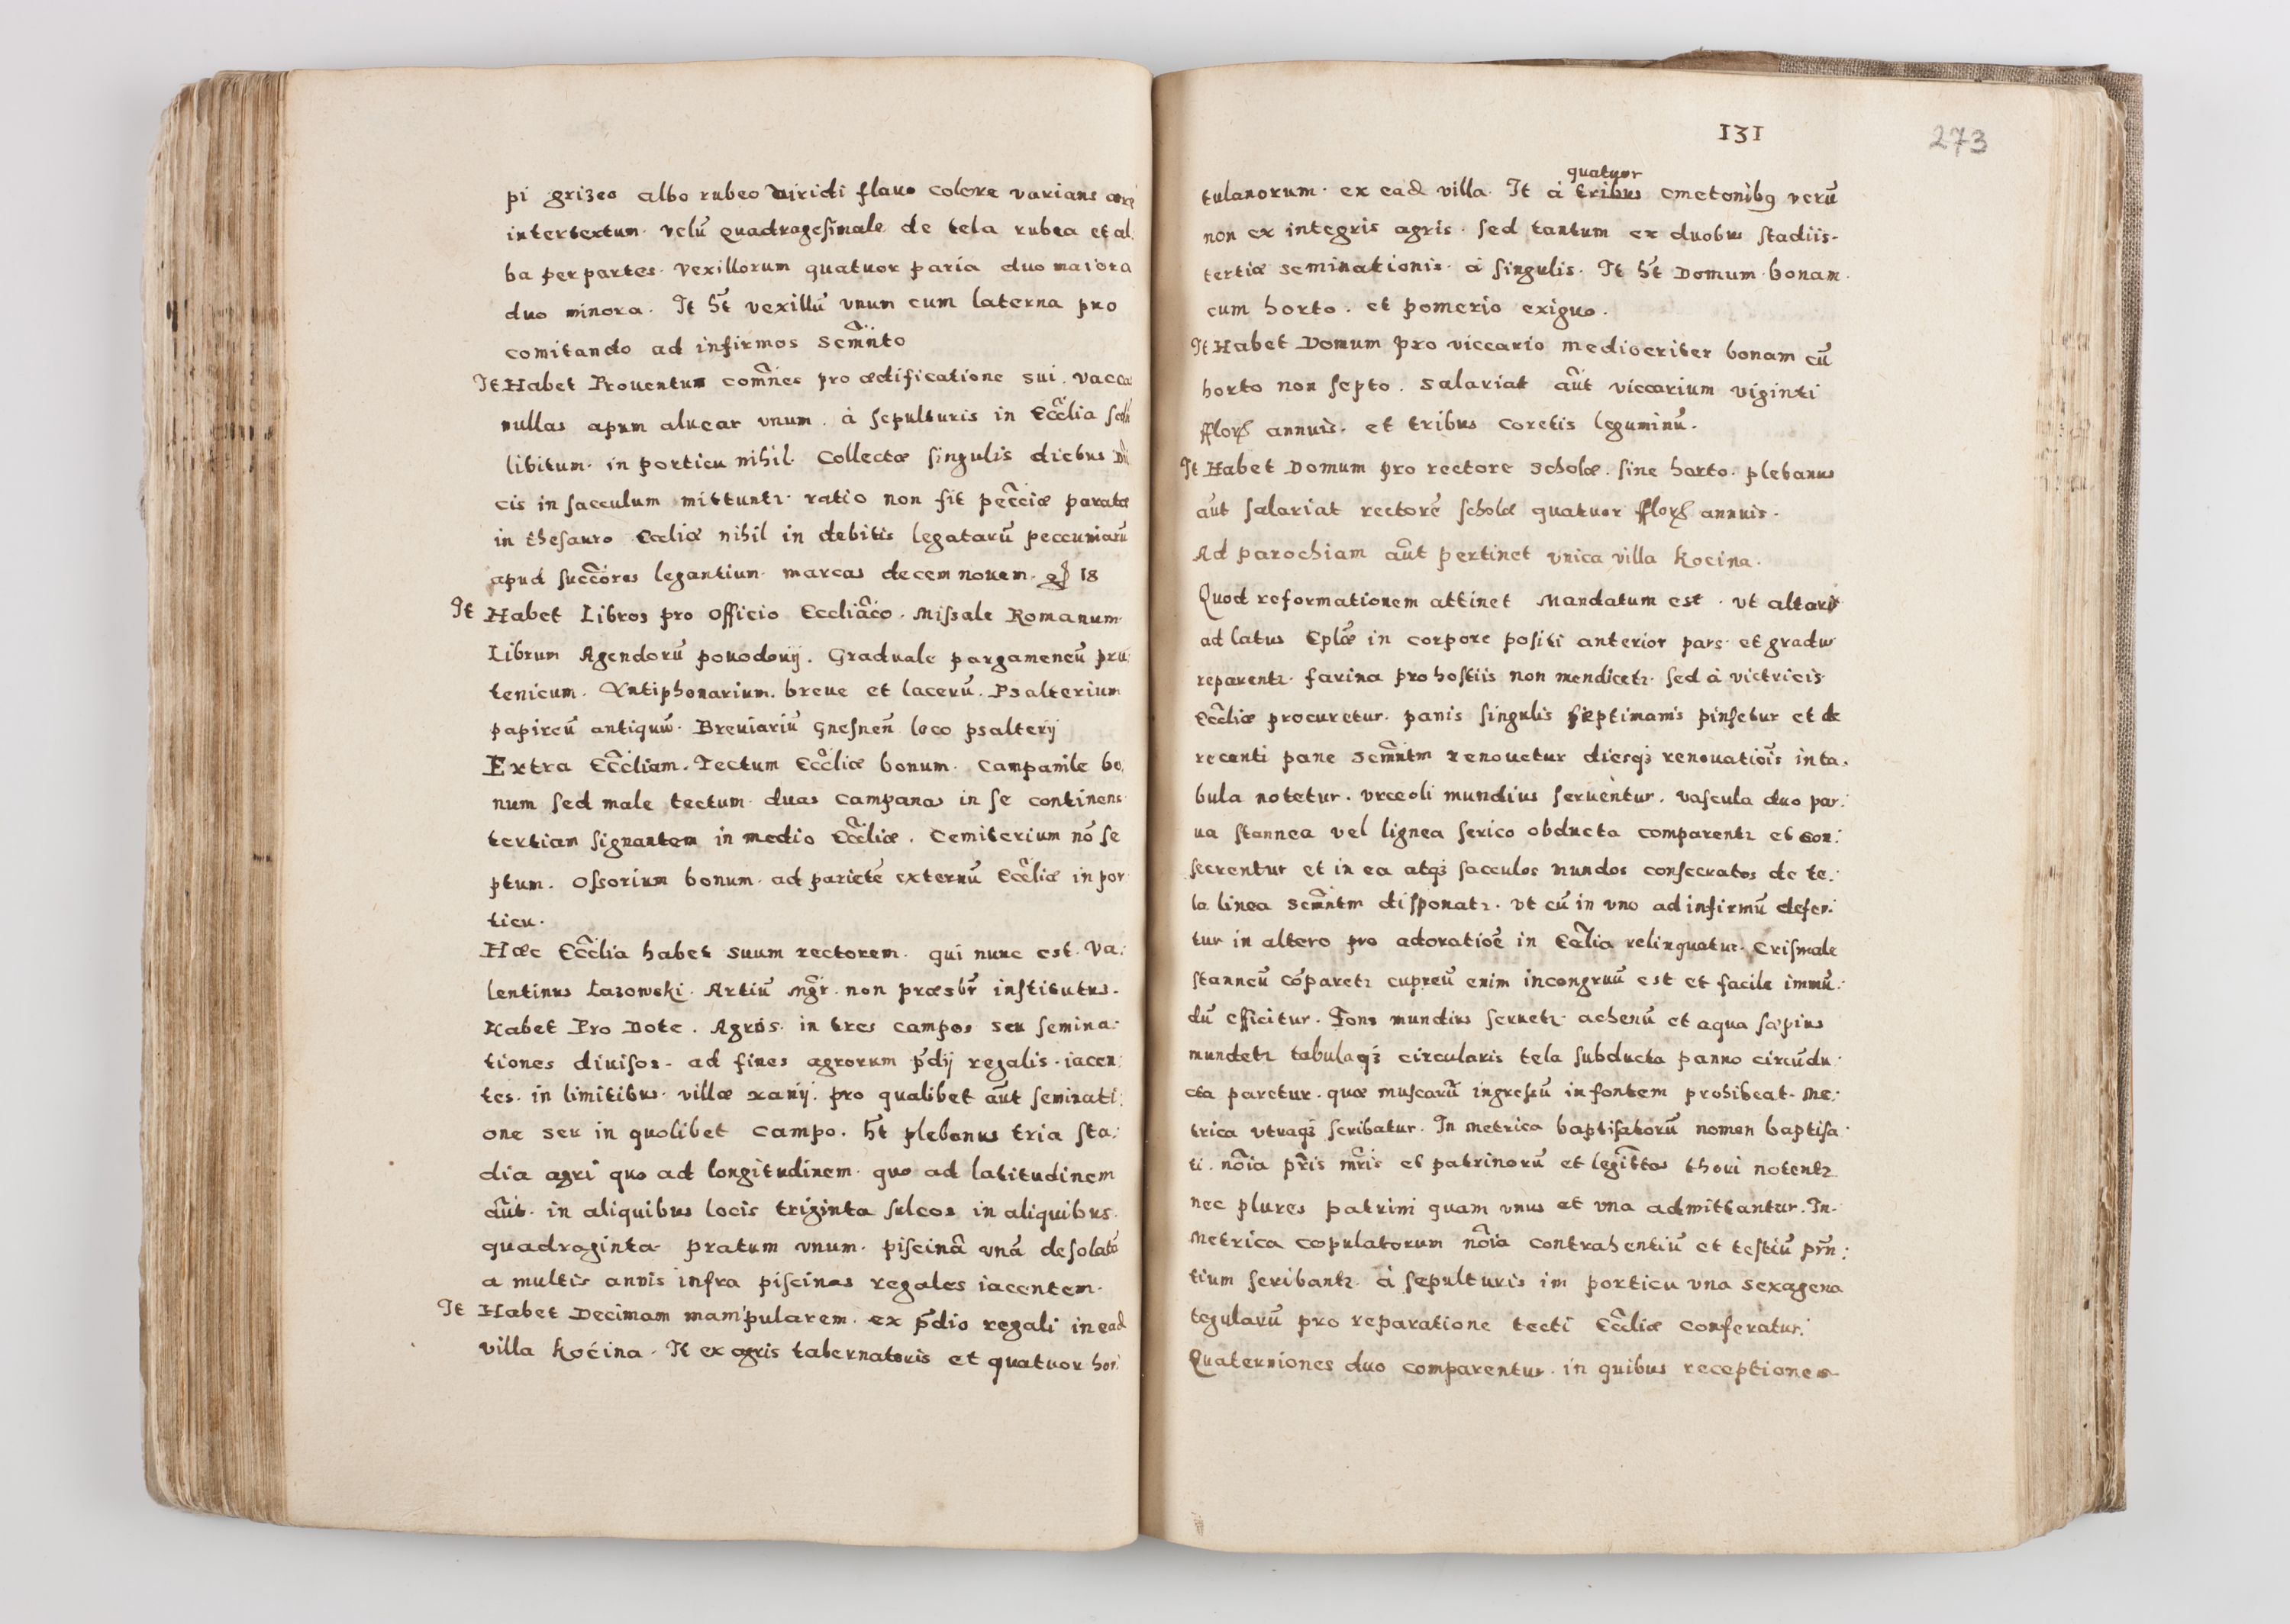 pi grizeo albo rubeo viridi flauo colore varians
intertextum. velū quadragesimale de tela rubea et al
ba per partes. vexillorum quatuor paria duo maiora
duo minora. It hт̄ vexillū vnum cum laterna pro
comitando ad infirmos Scm̄nto
It Habet Prouentum com̄nes pro ædificatione sui. vaccas
nullas apum aluear vnum. à sepulturis in Eccl̄ia
libitum. in porticu nihil. Collectæ singulis diebus
cis in sacculum mittuntr. ratio non fit pecc̄iæ paratæ
in thesauro Eccliæ nihil in debitis legatarū peccuniarū
apud succ̄ores legantium. marcas decem nouem. 18
It Habet Libros pro officio Eccliāco. Missale Romanum.
Librum Agendorū pouodouij. Graduale pargameneū pru
tenicum. Antiphonarium. breue et lacerū. Psalterium
papireū antiquū. Breuiariū Gnesnen̄ loco psalterij
Extra Eccl̄iam. Tectum Eccl̄iæ bonum. Campanile bo,
num sed male tectum. duas campanas in se continens
tertiam signantem in medio Eccl̄iæ. Cemiterium nō se
ptum. Ossorium bonum. ad parietē externū Eccl̄iæ in por
ticu.
Hæc Eccl̄ia habet suum rectorem. qui nunc est. Va:
lentinus Łazowski. Artiū Mgr̄. non præsbr̄ institutus.
Habet Pro Dote. Agros. in tres campos seu semina:
tiones diuisos. ad fines agrorum p̄dij regalis. iacen:
tes. in limitibus. villæ xanij. pro qualibet aūt seminati:
one seu in quolibet campo. hт̄ plebanus tria sta:
dia agri quo ad longitudinem. quo ad latitudinem
aūt. in aliquibus locis triginta sulcos in aliquibus.
quadraginta. pratum vnum. piscinā vnā desolatā
a multis annis infra piscinas regales iacentem.
It Habet Decimam mam'pularem. ex p̄dio regali in ead
villa Koćina. It ex agris tabernatoris et quatuor hor:
131
273
tulanorum. ex ead villa. It à tribus quatuor cmetonibq verū
non ex integris agris. sed tantum ex duobus stadiis.
tertiæ seminationis. à singulis. It hт̄ Domum bonam.
cum horto. et pomerio exiguo.
It Habet Domum pro viccario mediocriter bonam cū
horto non septo. salariat aūt viccarium viginti
fflorꝝ annuis. et tribus coretis leguminū.
It Habet Domum pro rectore scholæ. sine horto. plebanus
aūt salariat rectorē scholæ quatuor fflorꝝ annuis.
Ad parochiam aūt pertinet vnica villa Kocina.
Quod reformationem attinet Mandatum est. vt altaris
ad latus Eplǣ in corpore positi anterior pars. et gradus
reparentr. farina pro hostiis non mendicetr. sed à victricis
Eccl̄iæ procuretur. panis singulis septimanis pinsetur et de
recenti pane scm̄ntm renouetur diesqꝫ renouatiōis in ta.
bula notetur. vrceoli mundius seruentur. vascula duo par:
ua stannea vel lignea serico obducta comparentr et con:
secrentur et in ea atqꝫ sacculos mundos consecratos de te:
la linea scm̄ntm disponatr. vt cū in vno ad infirmū defer:
tur in altero pro adoratiōe in Eccl̄ia relinquatur. Crismale
stanneū cōparetr cupreū enim incongruū est et facile immū:
dū efficitur. Fons mundius seruetr. achenū et aqua sæpius
mundetr tabulaqꝫ circularis tela subducta panno circūdu:
cta paretur. quæ muscarū ingressū in fontem prohibeat. Me:
trica vtraqꝫ scribatur. In metrica baptisatorū nomen baptisa
ti. nōia pr̄is mr̄is et patrinorū et legit̄tas thori notentr
nec plures patrini quam vnus et vna admittantur. In.
Metrica copulatorum nōia contrahentiū et testiū pr̄n:
tium scribantr. à sepulturis im porticu vna sexagena
tegularū pro reparatione tecti Eccl̄iæ conferatur:
Quaterniones duo comparentur. in quibus receptiones